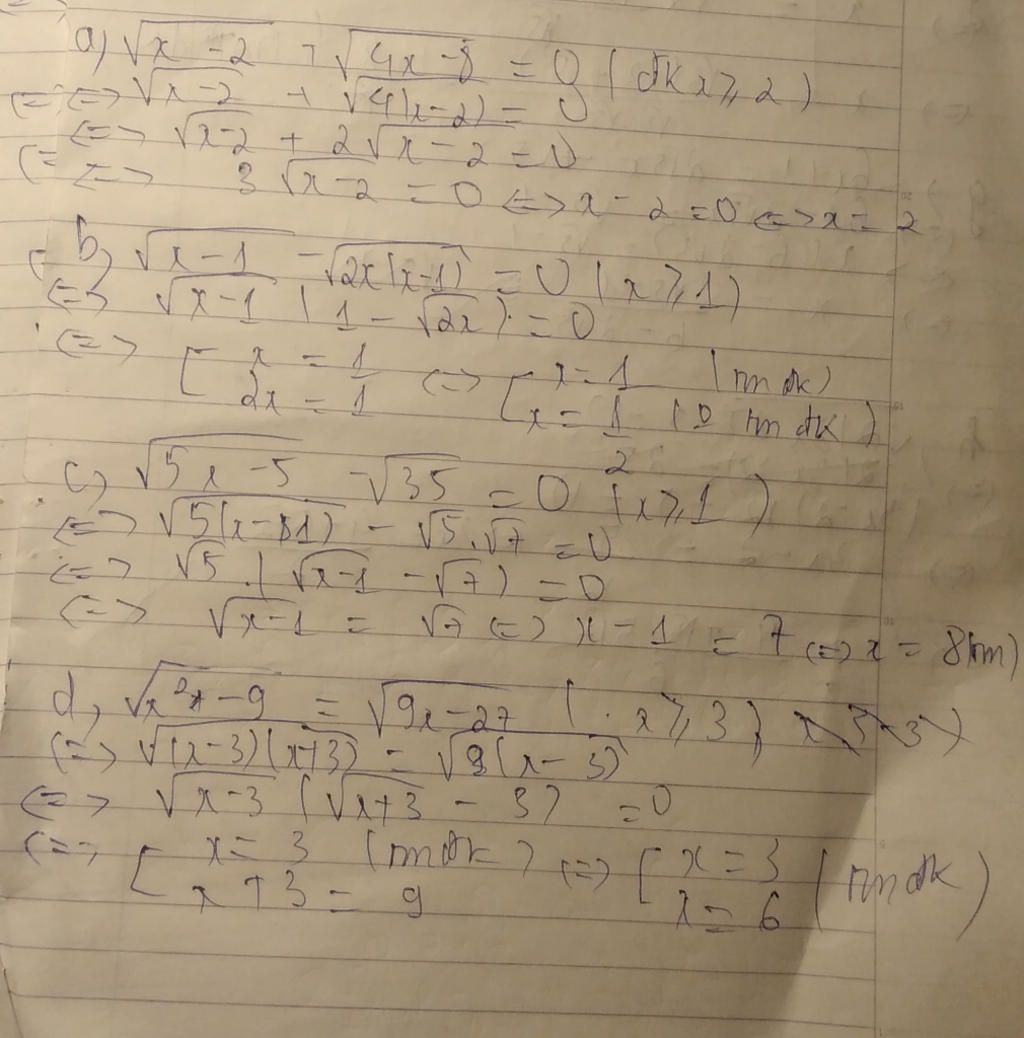 a) √(x-2) + √(4x-8) = 0 (đk x ≥ 2)
<=> √(x-2) + √(4(x-2)) = 0
<=> √(x-2) + 2√(x-2) = 0
<=> 3√(x-2) = 0 <=> x - 2 = 0 <=> x = 2
b, √(x-1) - √(2x(x-1)) = 0 (x ≥ 1)
<=> √(x-1) (1 - √(2x)) = 0
<=> [x = 1 <=> [x = 1 (tm đk)
2x = 1 x = 1/2 (0 tm đk)
c, √(5x-5) - √35 = 0 (x ≥ 1)
<=> √(5(x-1)) - √5.√7 = 0
<=> √5.(√(x-1) - √7) = 0
<=> √(x-1) = √7 <=> x - 1 = 7 <=> x = 8(tm)
d, √(x²-9) = √(9x-27) (x ≥ 3)
<=> √((x-3)(x+3)) = √(9(x-3))
<=> √(x-3) (√(x+3) - 3) = 0
<=> [x = 3 (tm đk) <=> [x = 3 (tm đk)
x + 3 = 9 x = 6